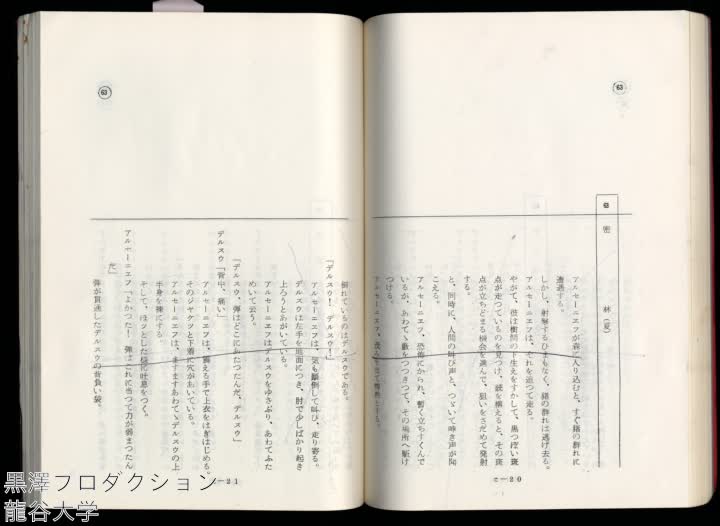 63
63 密林(夏)
アルセーニエフが森に入り込むと、すぐ猪の群れに
遭遇する。
しかし、射撃するひまもなく、猪の群れは逃げ去る。
アルセーニエフは、それを追つて走る。
やがて、彼は樹間の下生えをすかして、黒つぽい斑
点が走つているのを見つけ、銃を構えると、その斑
点が立ちどまる機会を逃さんで、狙いをさだめて発射
する。
と、同時に、人間の叫び声と、つゞいて呻き声が聞
こえる。
アルセーニエフ、恐怖にかられ、暫く立ちすくんで
いるが、あわてゝ藪をつつきつて、その場所へ駆け
つける。
アルセーニエフ、
c-20
63
倒れているのはデルスウである。
「デルスウ! デルスウ!」
アルセーニエフは、気も顛倒して叫び、走り寄る。
デルスウは左手を地面につき、肘で少しばかり起き
上ろうとあがいている。
アルセーニエフはデルスウをゆさぶり、あわてふた
めいて云う。
「デルスウ、弾はどこにあたつたんだ、デルスウ」
デルスウ「背中、痛い」
アルセーニエフは、震える手で上衣をはぎはじめる。
そのジャケツと下着に穴があいている。
アルセーニエフは、ますますあわてゝデルスウの上
半身を裸にする。
そして、ほツとした様に吐息をつく。
アルセーニエフ「よかつた! 弾はこれに当つて力が弱まつたん
だ」
弾が貫通したデルスウの背負い袋。
c-21
黒澤プロダクション
龍谷大学